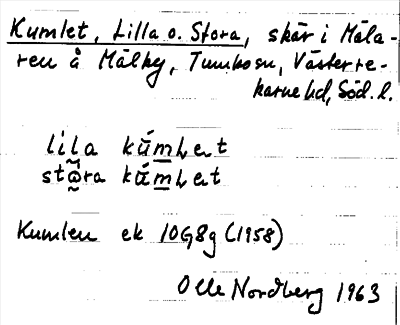 Kumlet, Lilla o. Stora, skär i Mäla-
ren å Mälby, Tumbosn, Västerre-
karnehd, Söd. l.
lila kúmlet
stora kúmlet
Kumlen ek 10G8g (1958)
Olle Nordberg 1963